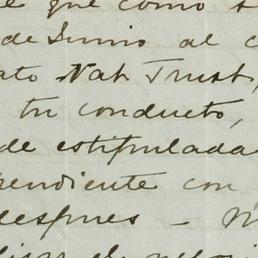 que como
de Junio al
ato Nat Trust,
tu conducto,
de estipulada
rendiente con
despues —